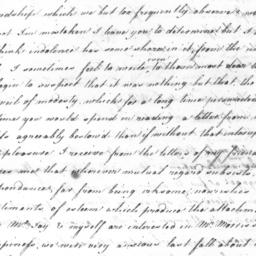 which we but too frequently observe
I am mistaken I leave you to determine but it
think indolence has some share in it, from the
I sometimes feel to write, even to those most dear to
begin to suspect that it was nothing but that the
veil of modesty, which for a long time persuaded
time you would spend in reading a letter from
agreeably bestow'd than if without that interrup
pleasure I receive from the letters of my Friend
me that wherever mutual regard subsists,
pondence, far from being irksome, now
timents of esteem which produce the attachm
Mrs. Jay & myself are interested in Mr. Morris's
we were very anxious last fall about